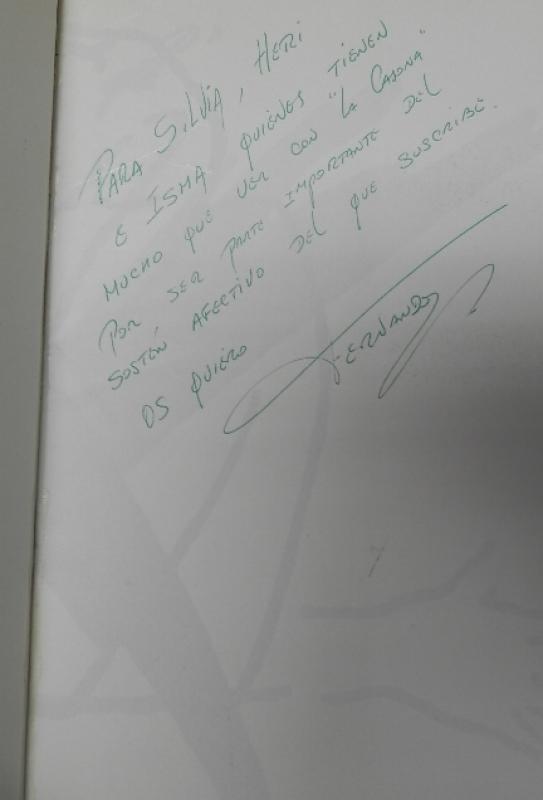 PARA SILVIA, HETI
E ISMA QUIÉNES TIENEN
MUCHO QUE VER CON "LA CASONA"
POR SER PARTE IMPORTANTE DEL
SOSTÉN AFECTIVO DEL QUE SUSCRIBE.
OS QUIERO FERNANDO